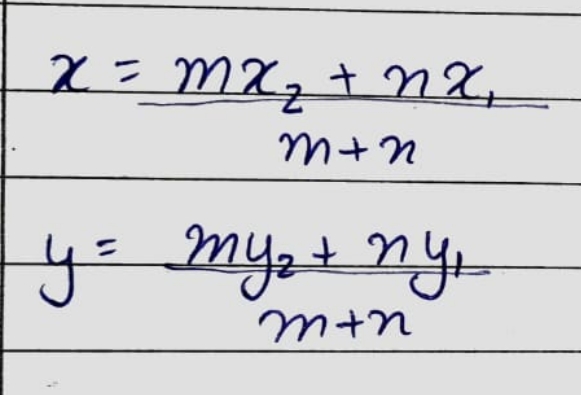 x = mx₂ + nx₁
m+n
y = my₂ + ny₁
m+n